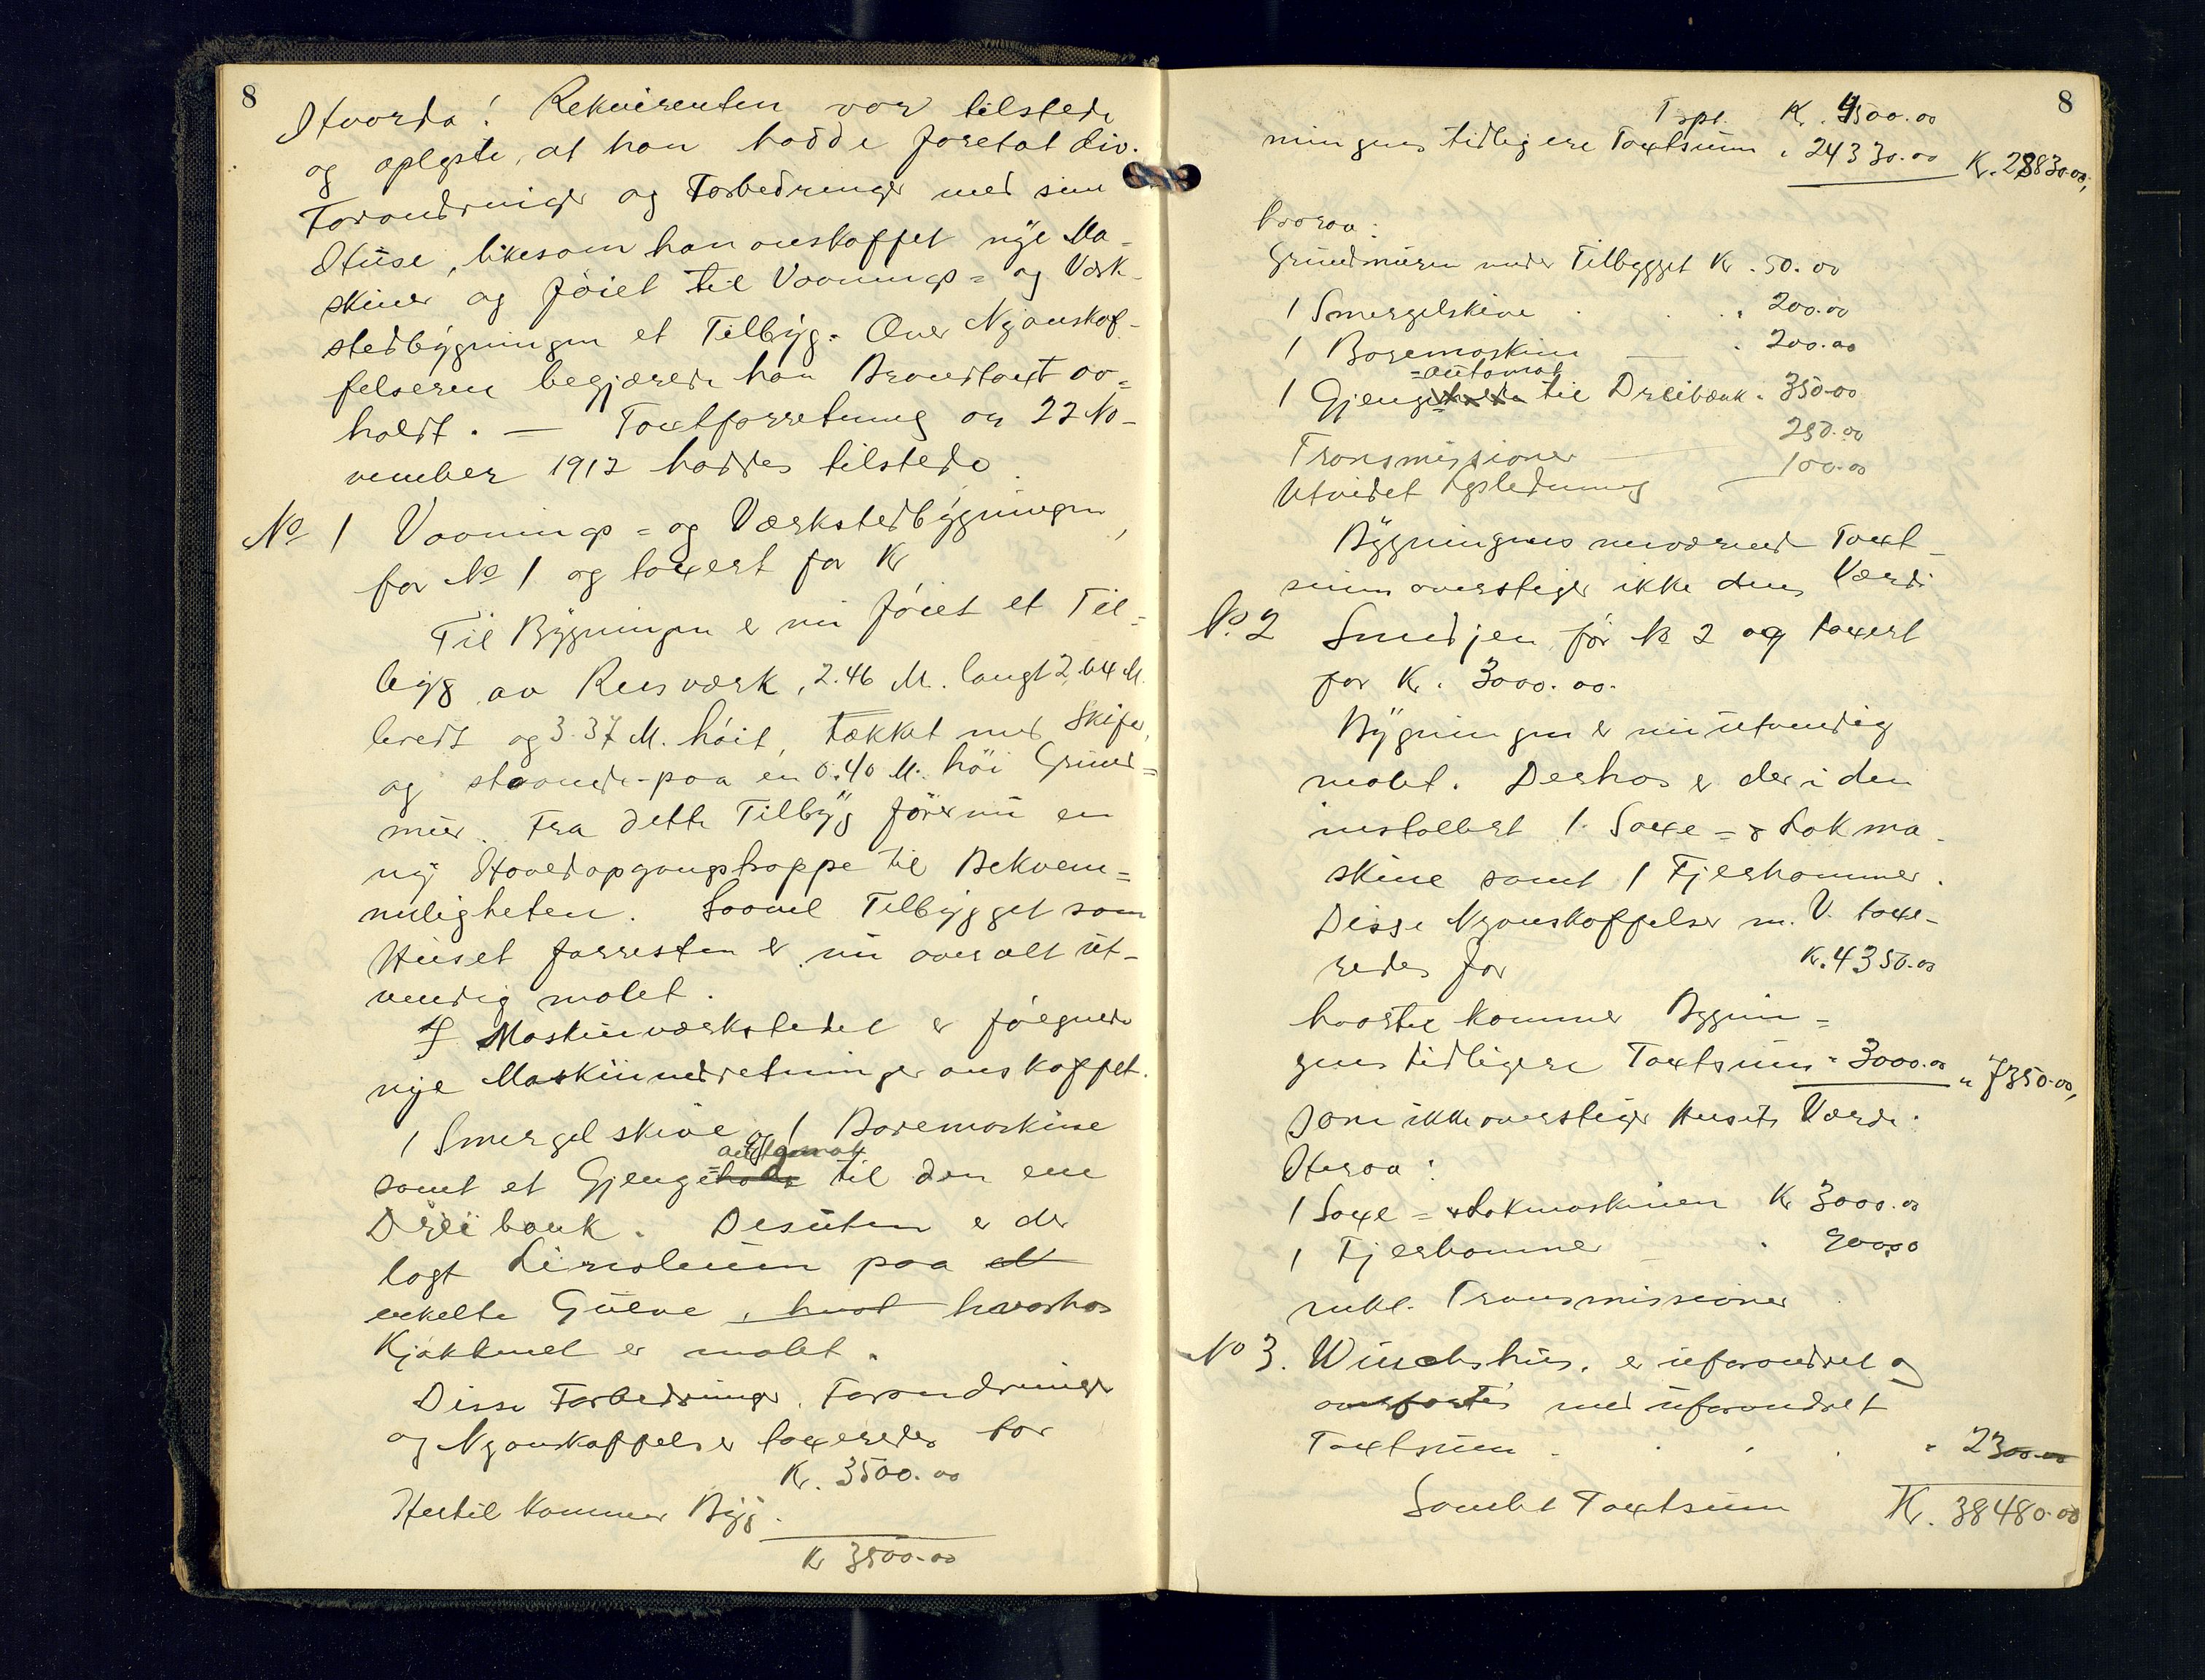 8
Hvorda! Rekvirenten var tilstede
og oplyste, at han hadde foretat div.
Forandringer og Forbedringer med sine
Huse, likesom han anskaffet nye Ma-
skiner og föiet til Vaanings= og Verk-
stedbygningen et Tilbyg. Over Nyanskaf-
felseren begjærede han Brandtaxt av=
holdt. — Taxtforretning av 22 No-
vember 1912 haddes tilstede
No 1 Vaanings= og Værkstedbygningen,
för No 1 og taxert for Kr
Til Bygningen er nu föiet et Til=
byg av Reisværk, 2.46 M. langt 2,64 M.
bredt og 3.37 M. höit, tækket med Skifer,
og staaende paa en 0.40 M. höi Grund=
mur. Fra dette Tilbyg förer nu en
ny Hovedopgangstrappe til Bekvem=
meligheten. Saavel Tilbygget som
Huset forresten er nu overalt ut-
vendig malet.
I Maskinværkstedet er fölgende
nye Maskinindretninger anskaffet.
1 Smergelskive og 1 Boremaskine
=automat
samt et Gjenge til den ene
Dreibænk. Desuten er der
lagt Linoleum paa
enkelte Gulve, hvorhos
Kjökkenet er malet.
Disse Forbedringer, Forandringer
og Nyanskaffelser taxeredes for
Kr. 3500.00
Hertil kommer Byg.
Kr 3500.00
8
Tspt. Kr. 4500.00
ningens tidligere Taxtsum " 24330.00 Kr. 28830.00,
hvorav:
Grundmuren under Tilbygget Kr. 50.00
1 Smergelskive " 200.00
1 Boremaskine — " 200.00
=automat
1 Gjenge til Dreibænk " 350.00
Transmissioner — 250.00
Utvidet Lysledning — 100.00
Bygningens nuværende Taxt-
sum overstiger ikke dens Værdi
No. 2 Smedjen för No 2 og taxert
for Kr. 3000.00.
Bygningen er nu utvendig
malet. Derhos er der i den
installert 1 Saxe= & Lokma-
skine samt 1 Fjerhammer.
Disse Nyanskaffelser m. V. taxe-
redes for Kr. 4350.00
hvortil kommer Bygnin=
gens tidligere Taxtsum " 3000.00 " 7350.00,
som ikke overstiger Husets Værdi.
Herav:
1 Saxe= & Lokmaskinen Kr 3000.00
1 Fjerhammer — " 900.00
inkl. Transmissioner
No 3. Winchhus, er uforandret og
overfortes med uforandret
Taxtsum . . . " 2300.00
Samlet Taxtsum Kr. 38480.00